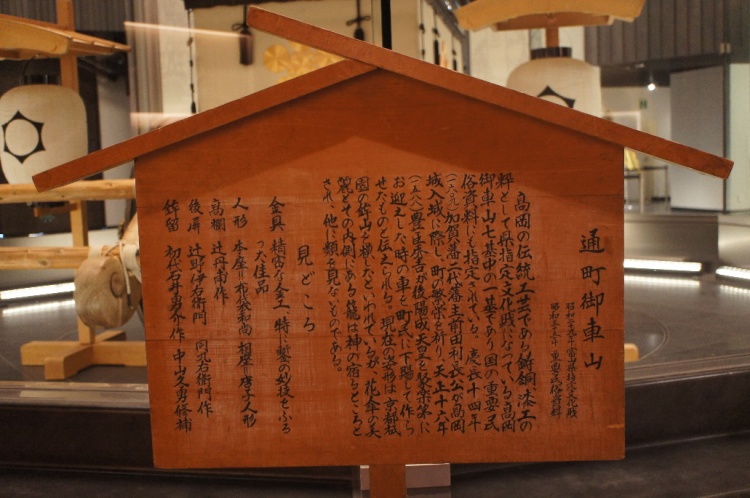 通町御車山
昭和
高岡の伝統工芸である鋳銅漆工の
粋として県指定文化財になっている高岡
御車山七基中の一基であり国の重要民
俗資料にも指定されている。慶長十四年
(一六〇九)加賀藩二代藩主前田利長公が高岡
城入城に際し、町の繁栄を祈り、天正十六年
(一五八八)豊臣秀吉が後陽成天皇を聚楽第に
お迎えした時の車を町民に下賜して作ら
せたものと伝えられる。現在の姿形は京都祇
園の鉾山を模したといわれているが、花傘の美
麗とその外側にある籠は神の宿るところと
され、他に類を見ないものである。
見どころ
金具 精密な金工、特に鏨の妙技をふる
った佳品
人形 本座=布袋和尚 相座=唐子人形
高欄 辻丹甫作
後屏 辻野伊右衛門 同 右衛門作
鉾留 初代石井勇介作 中山久勇修補